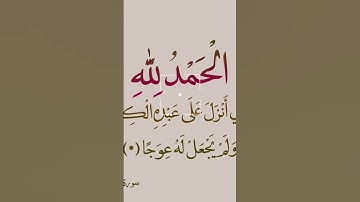 الْحَمْدُ لِلَّهِ
أَنْزَلَ عَلَى عَبْدِهِ
وَلَمْ يَجْعَلْ لَهُ عِوَجًا (*)